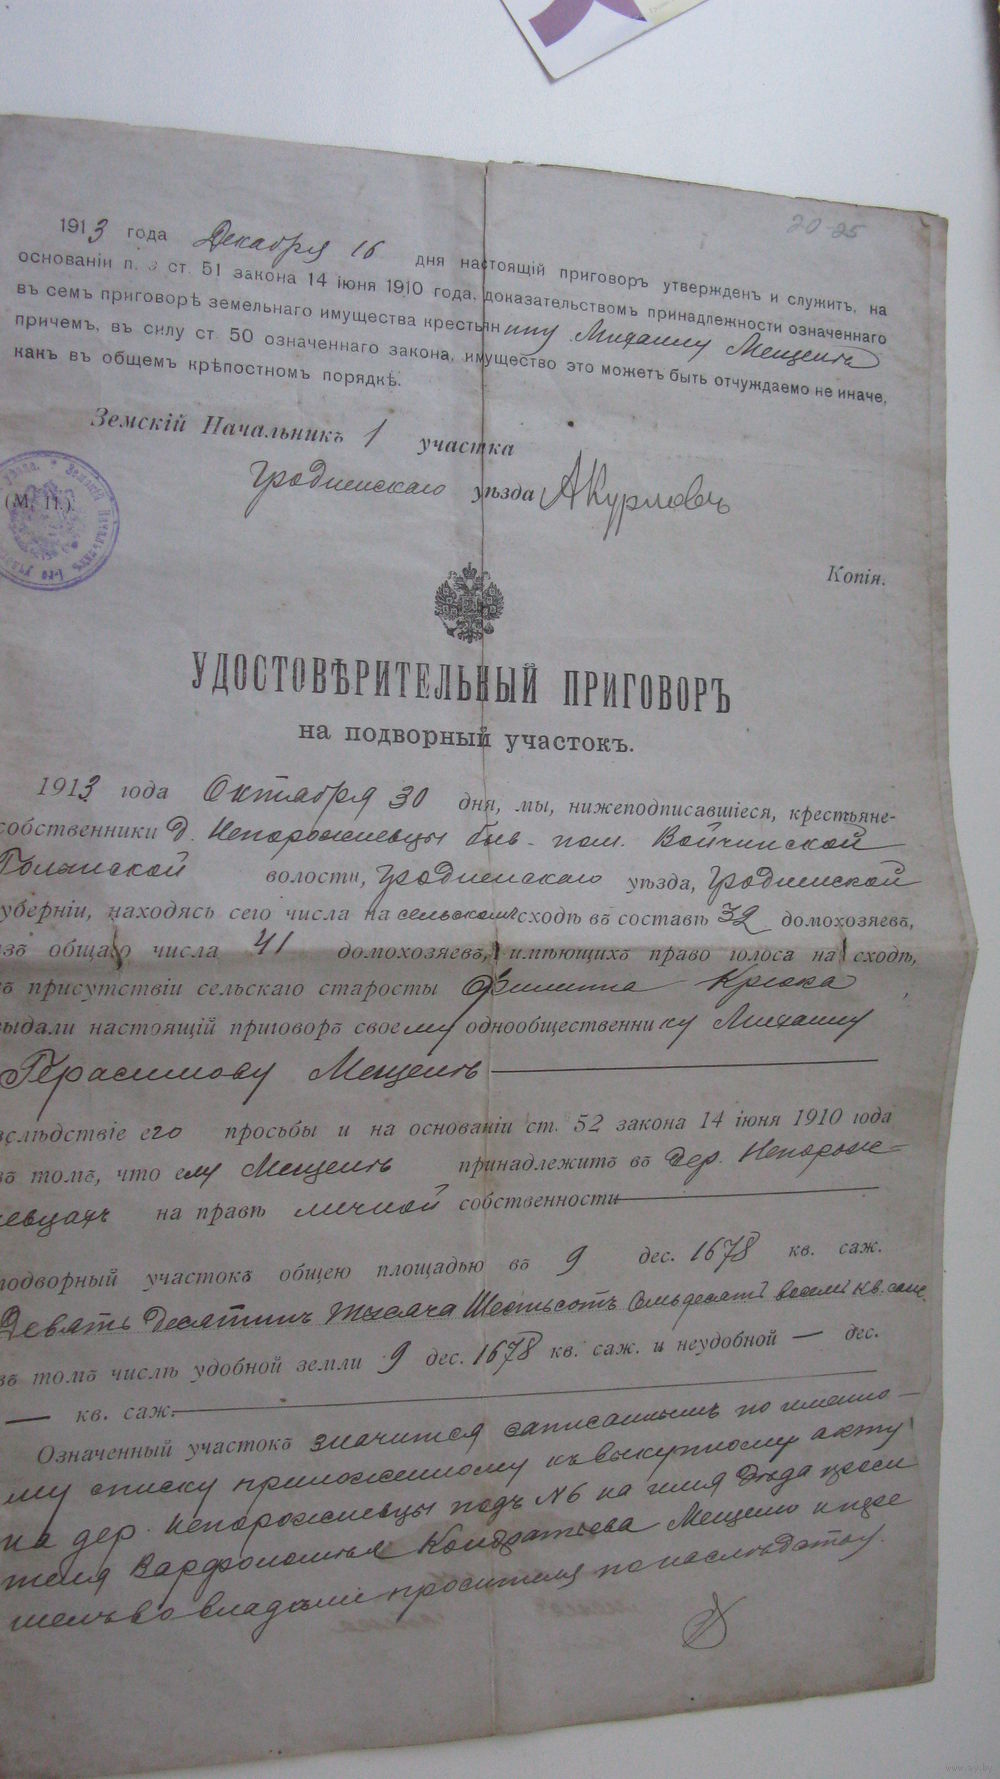 20-25
1913 года Декабря 16 дня настоящій приговоръ утвержденъ и служитъ, на
основаніи п. ст. 51 закона 14 іюня 1910 года, доказательствомъ принадлежности означеннаго
въ семъ приговорѣ земельнаго имущества крестьянину Михаилу Мещеить
причемъ, въ силу ст 50 означеннаго закона, имущество это можетъ быть отчуждаемо не иначе,
какъ въ общемъ крѣпостномъ порядкѣ.
Земскій Начальникъ 1 участка
Гродненскаго уѣзда АКурловъ
(М. П.)
Копія.
УДОСТОВѢРИТЕЛЬНЫЙ ПРИГОВОРЪ
на подворный участокъ.
1913 года Октября 30 дня, мы, нижеподписавшіеся, крестьяне-
собственники д. Непорожневцы быв. пом. Войчинской
волости, Гродненскаго уѣзда, Гродненской
губерніи, находясь сего числа на сельскомъ сходѣ въ составѣ 32 домохозяевъ,
изъ общаго числа 41 домохозяевъ, имѣющихъ право голоса на сходѣ,
въ присутствіи сельскаго старосты Филиппа Крюка
выдали настоящій приговоръ своему однообщественнику Михаилу
Герасимову Мещеить
вслѣдствіе его просьбы и на основаніи ст. 52 закона 14 іюня 1910 года
въ томъ, что ему Мещеить принадлежитъ въ дер. Непорож-
невцахъ на правѣ личной собственности
подворный участокъ общею площадью въ 9 дес. 1678 кв. саж.
Девять десятинъ тысяча шестьсотъ семьдесятъ восемь кв. саж.
въ томъ числѣ удобной земли 9 дес. 1678 кв. саж. и неудобной — дес.
— кв. саж.
Означенный участокъ значится записаннымъ по имянно-
му списку приложенному къ выкупному акту
на дер. Непорожневцы подъ №6 на имя дѣда проси
теля Варфоломея Кондратьева Мещеить и пере
шелъ во владѣніе просителя по наслѣдству.